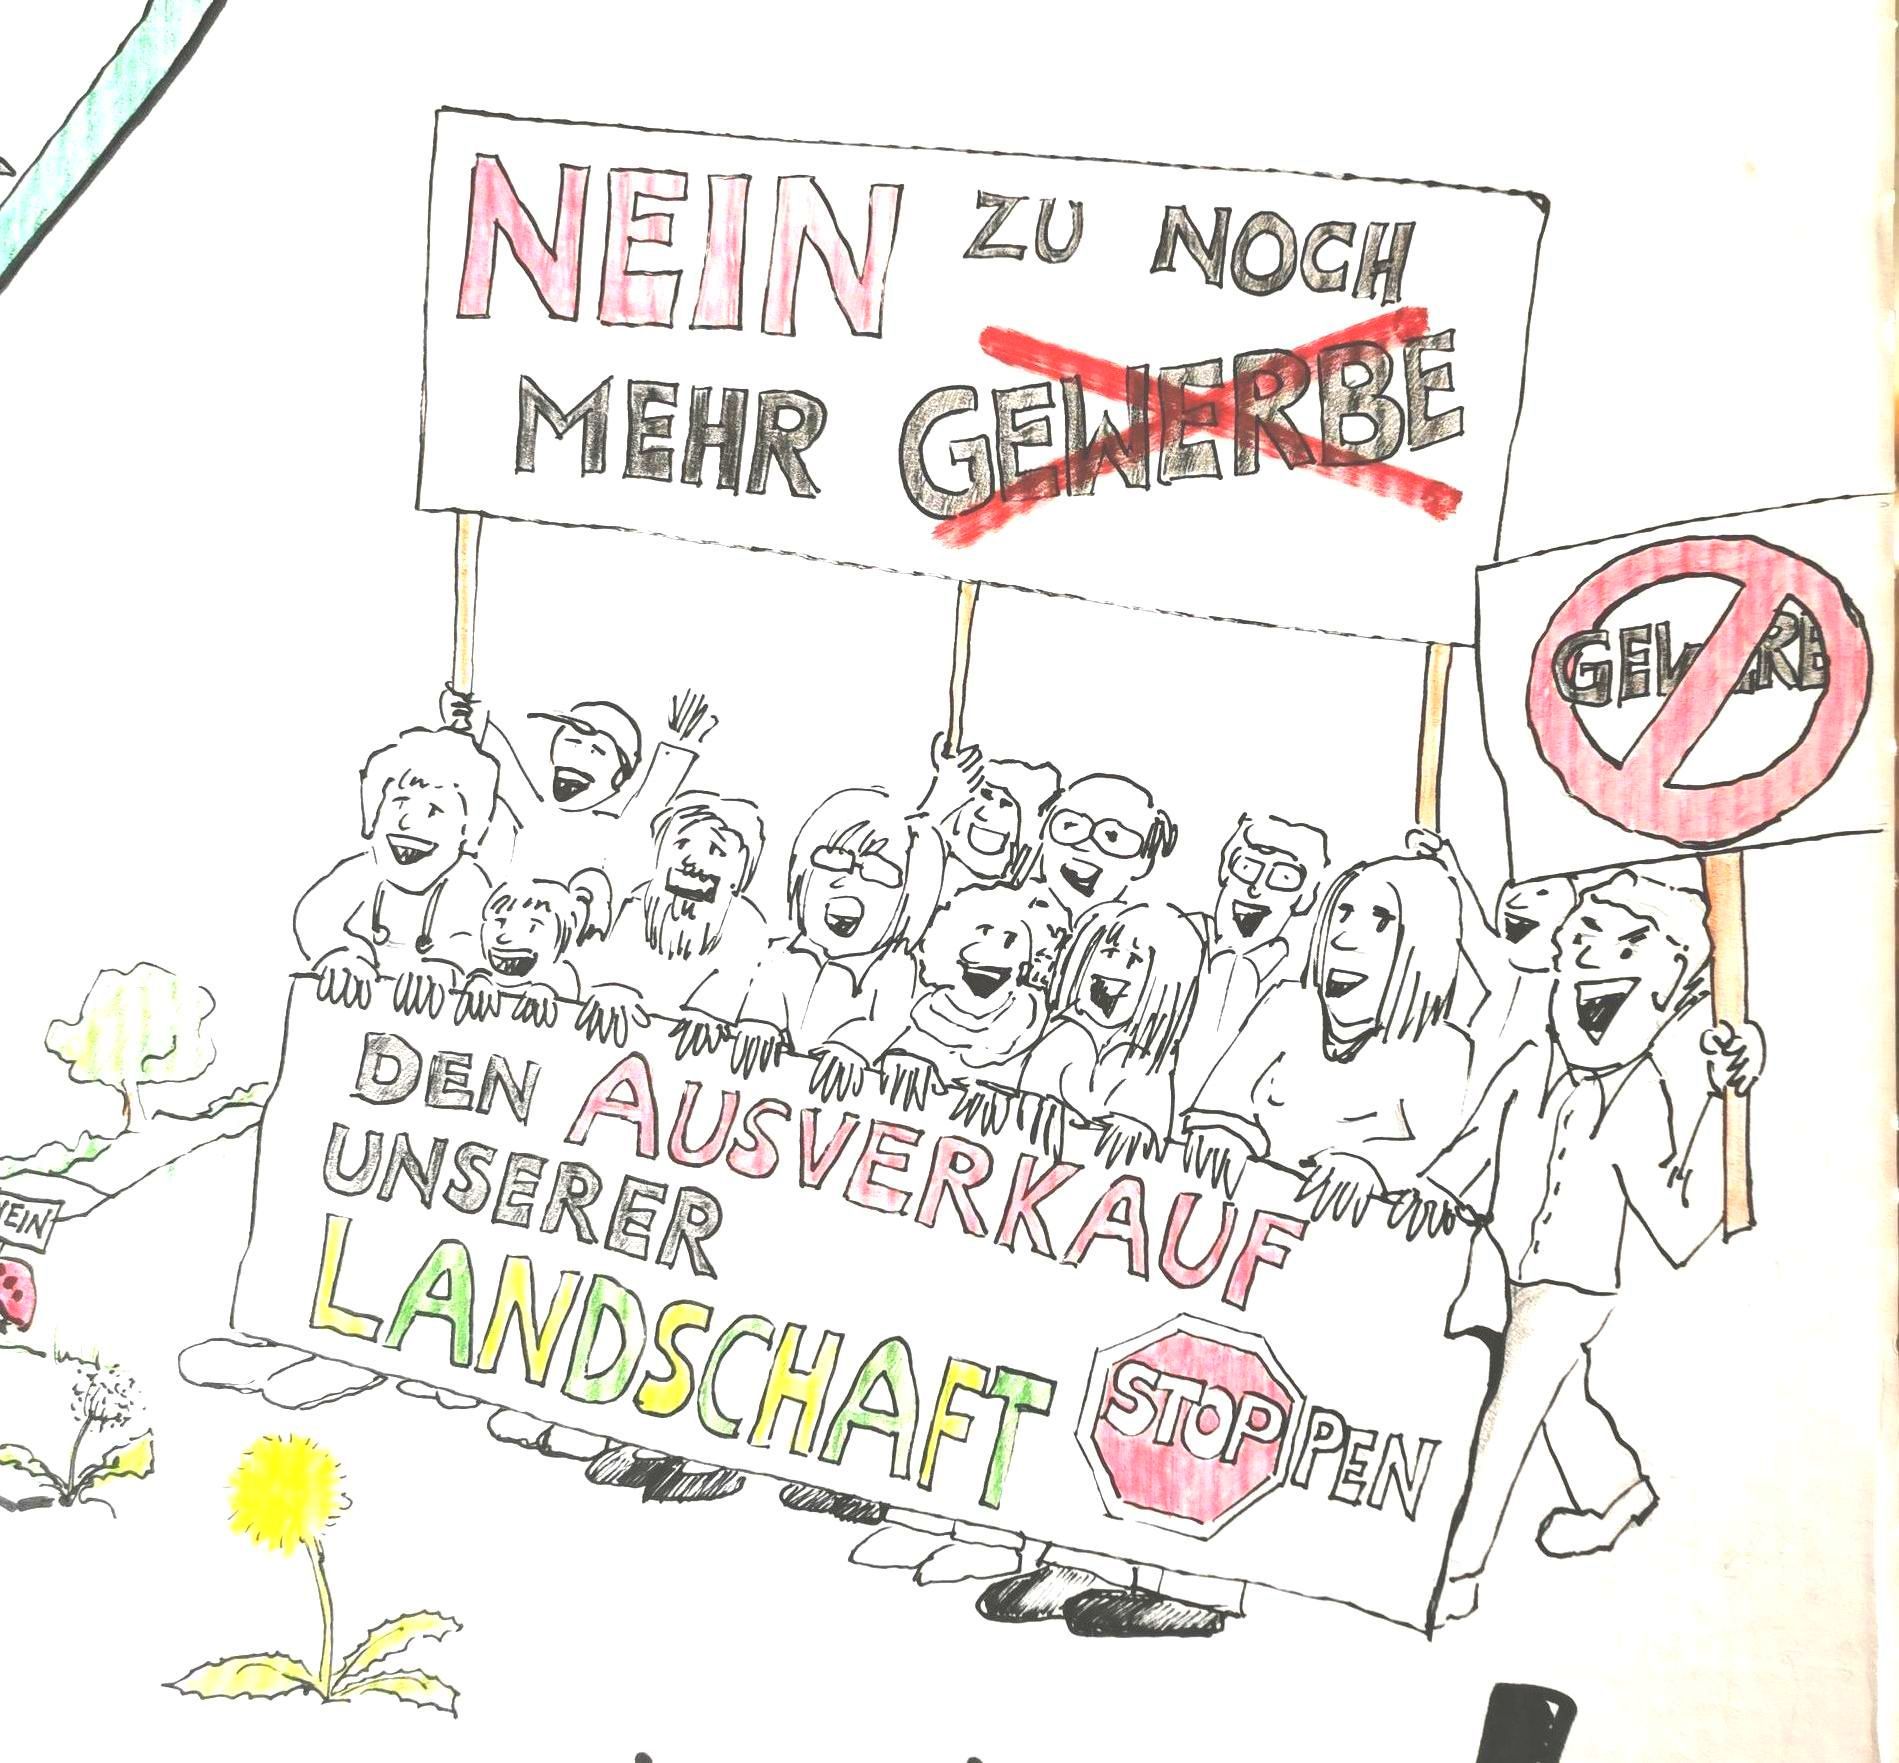 NEIN ZU NOCH
MEHR GEWERBE
GEWERBE
DEN AUSVERKAUF
UNSERER
LANDSCHAFT STOPPEN
NEIN